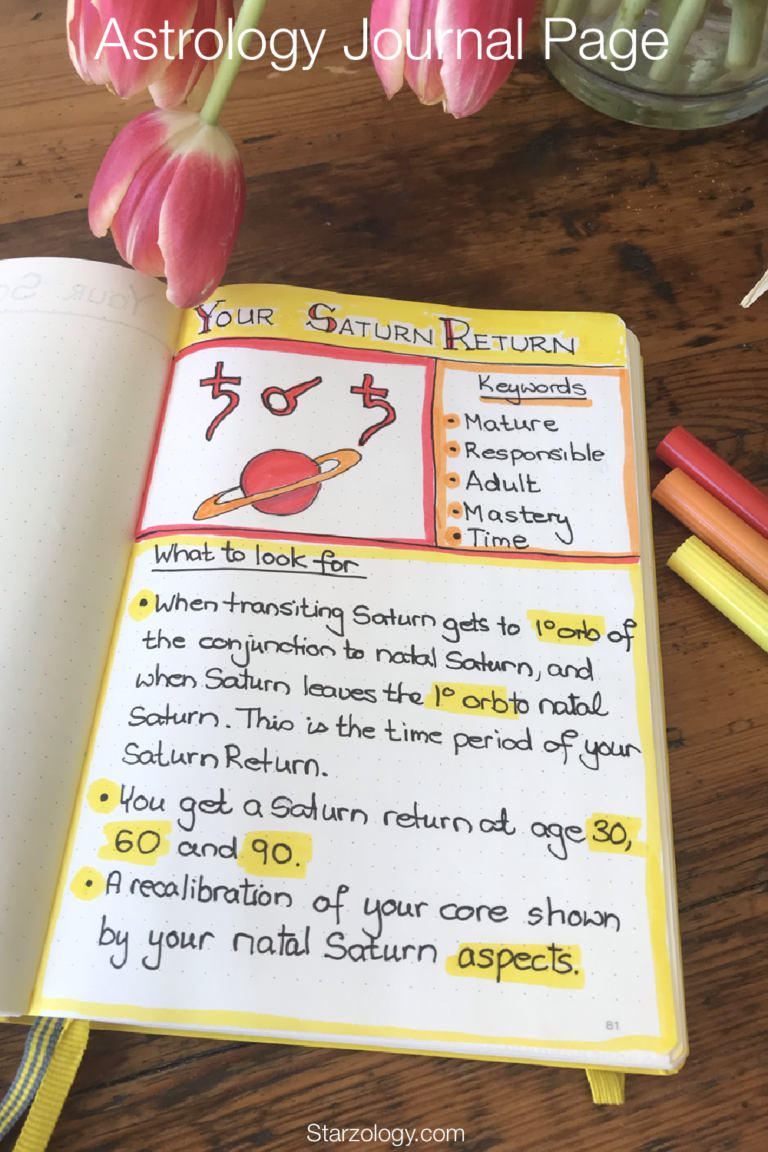 Astrology Journal Page
Your Saturn Return
♄ ☌ ♄
Keywords
• Mature
• Responsible
• Adult
• Mastery
• Time
What to look for
• When transiting Saturn gets to 1° orb of
the conjunction to natal Saturn, and
when Saturn leaves the 1° orb to natal
Saturn. This is the time period of your
Saturn Return.
• You get a Saturn return at age 30,
60 and 90.
• A recalibration of your core shown
by your natal Saturn aspects.
81
Starzology.com